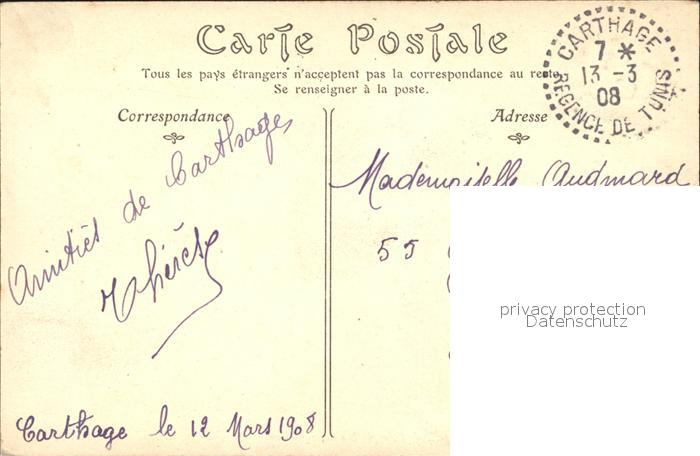 Carte Postale
Tous les pays étrangers n'acceptent pas la correspondance au recto
Se renseigner à la poste.
CARTHAGE
7 *
13 -3
08
REGENCE DE TUNIS
Correspondance
Adresse
Amitiés de Carthage
Thérèse
Carthage le 12 Mars 1908
Mademoiselle Audmard
55
privacy protection
Datenschutz